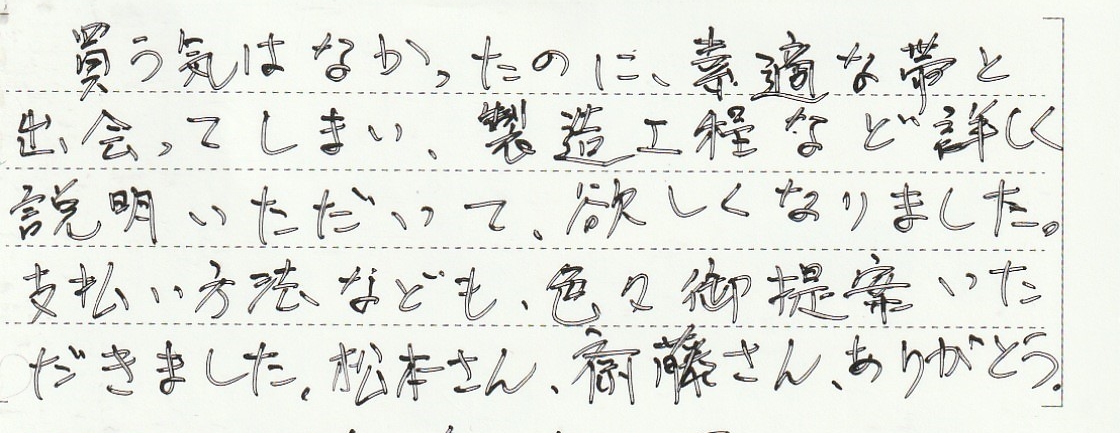 買う気はなかったのに、素適な帯と
出会ってしまい、製造工程など詳しく
説明いただいて、欲しくなりました。
支払い方法なども、色々御提案いた
だきました。松本さん、齋藤さん、ありがとう。